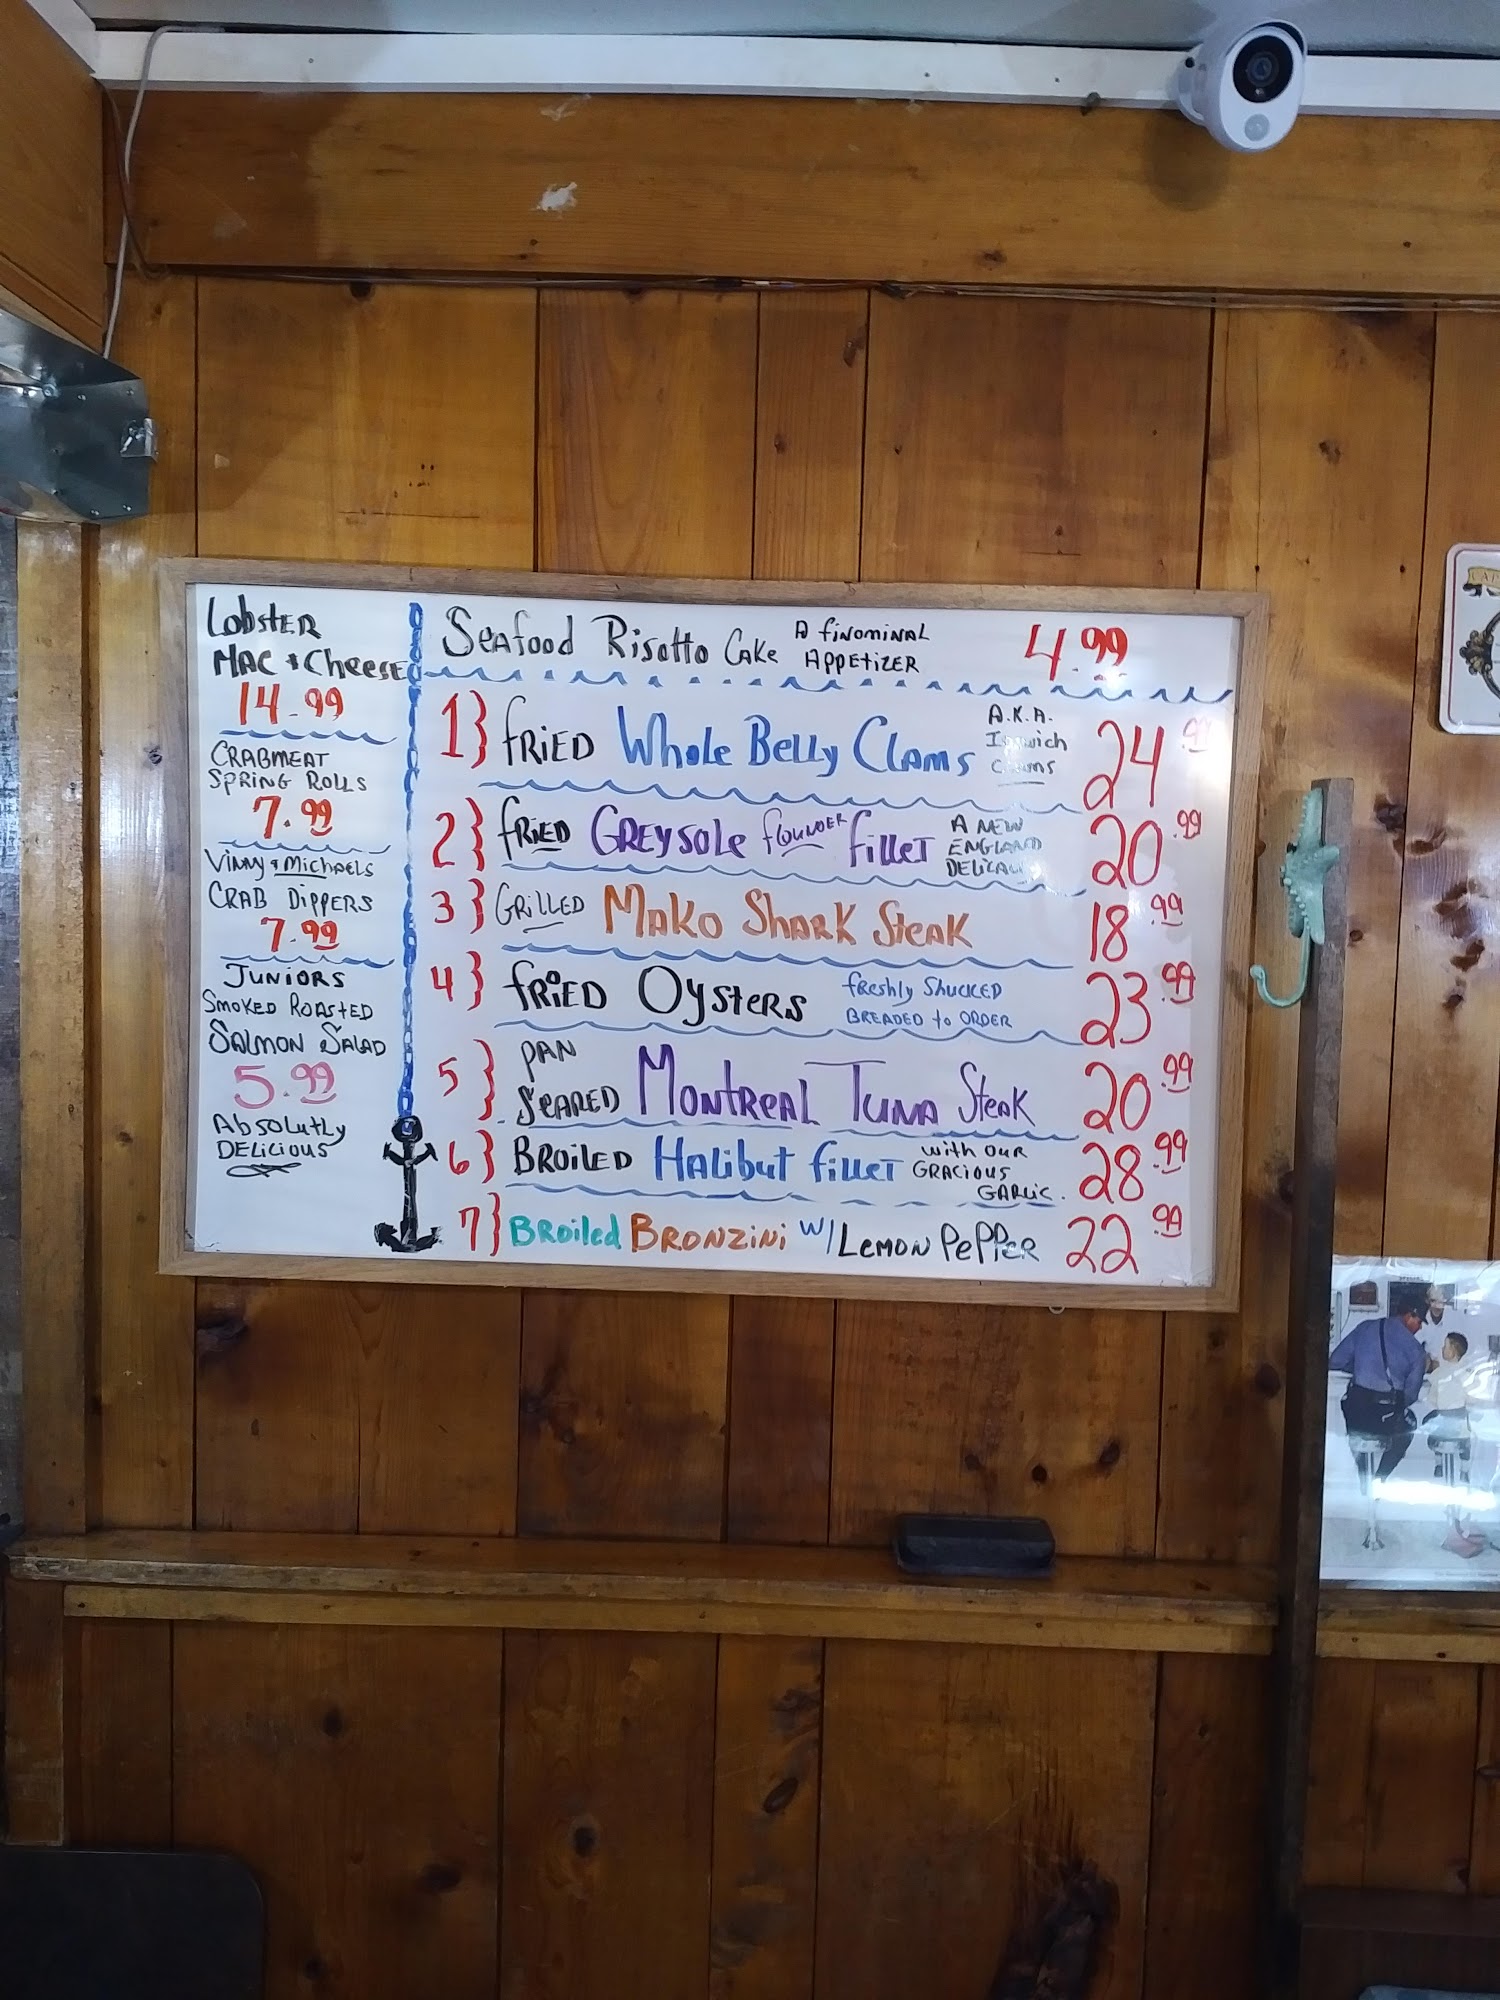 Lobster
Mac + Cheese
14.99
Crabmeat
Spring Rolls
7.99
Vinny + Michaels
Crab Dippers
7.99
Juniors
Smoked Roasted
Salmon Salad
5.99
Absolutly
Delicious
Seafood Risotto Cake A finominal Appetizer 4.99
1} Fried Whole Belly Clams A.K.A. Ipswich Clams 24.99
2} Fried Greysole flounder fillet A New England 20.99
3} Grilled Mako Shark Steak 18.99
4} Fried Oysters freshly shucked Breaded to order 23.99
5} Pan Seared Montreal Tuna Steak 20.99
6} Broiled Halibut fillet with our Gracious Garlic. 28.99
7} Broiled Bronzini w/ Lemon Pepper 22.99